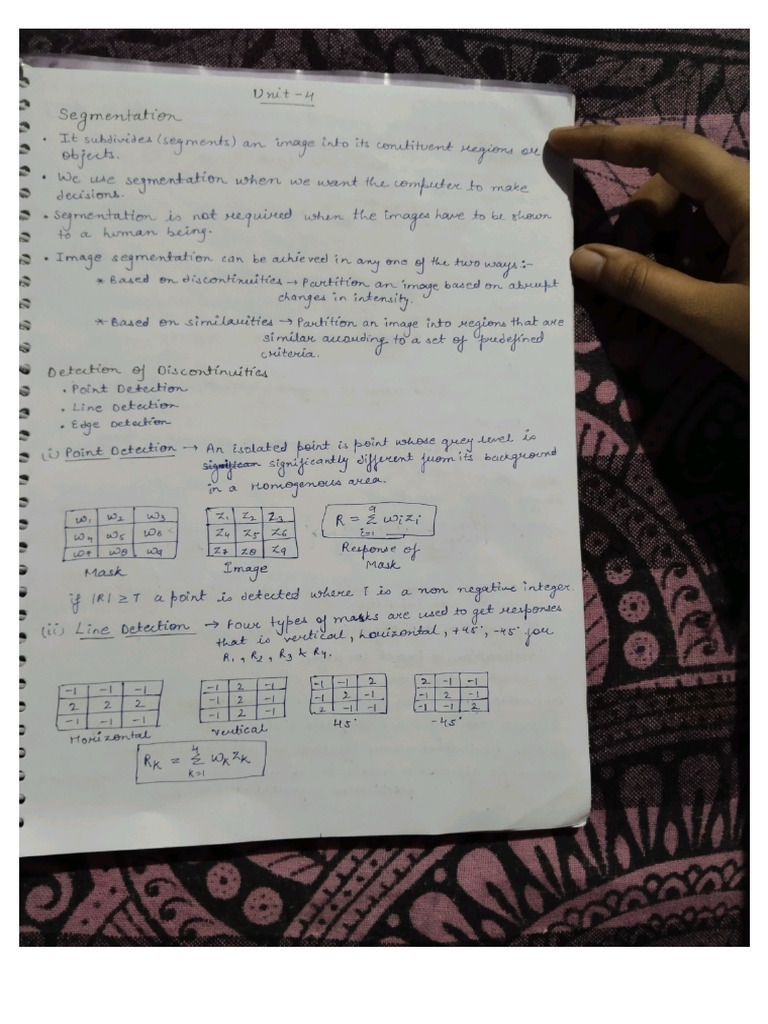 Unit-4
Segmentation
• It subdivides (segments) an image into its constituent regions or
objects.
• We use segmentation when we want the computer to make
decisions.
• Segmentation is not required when the images have to be shown
to a human being.
• Image segmentation can be achieved in any one of the two ways:-
* Based on discontinuities → Partition an image based on abrupt
changes in intensity.
* Based on similarities → Partition an image into regions that are
similar according to a set of predefined
criteria.
Detection of Discontinuities
• Point Detection
• Line Detection
• Edge Detection
(i) Point Detection → An isolated point is point whose grey level is
significantly different from its background
in a Homogenous area.
w1 w2 w3
w4 w5 w6
w7 w8 w9
Mask
Z1 Z2 Z3
Z4 Z5 Z6
Z7 Z8 Z9
Image
R = 9 Σ i=1 wizi
Response of
Mask
if |R| ≥ T a point is detected where T is a non negative integer.
(ii) Line Detection → Four types of masks are used to get responses
that is vertical, horizontal, +45°, -45° for
R1, R2, R3 & R4.
-1 -1 -1
2 2 2
-1 -1 -1
Horizontal
-1 2 -1
-1 2 -1
-1 2 -1
Vertical
-1 -1 2
-1 2 -1
2 -1 -1
45°
2 -1 -1
-1 2 -1
-1 -1 2
-45°
RK = 4 Σ k=1 WKZK